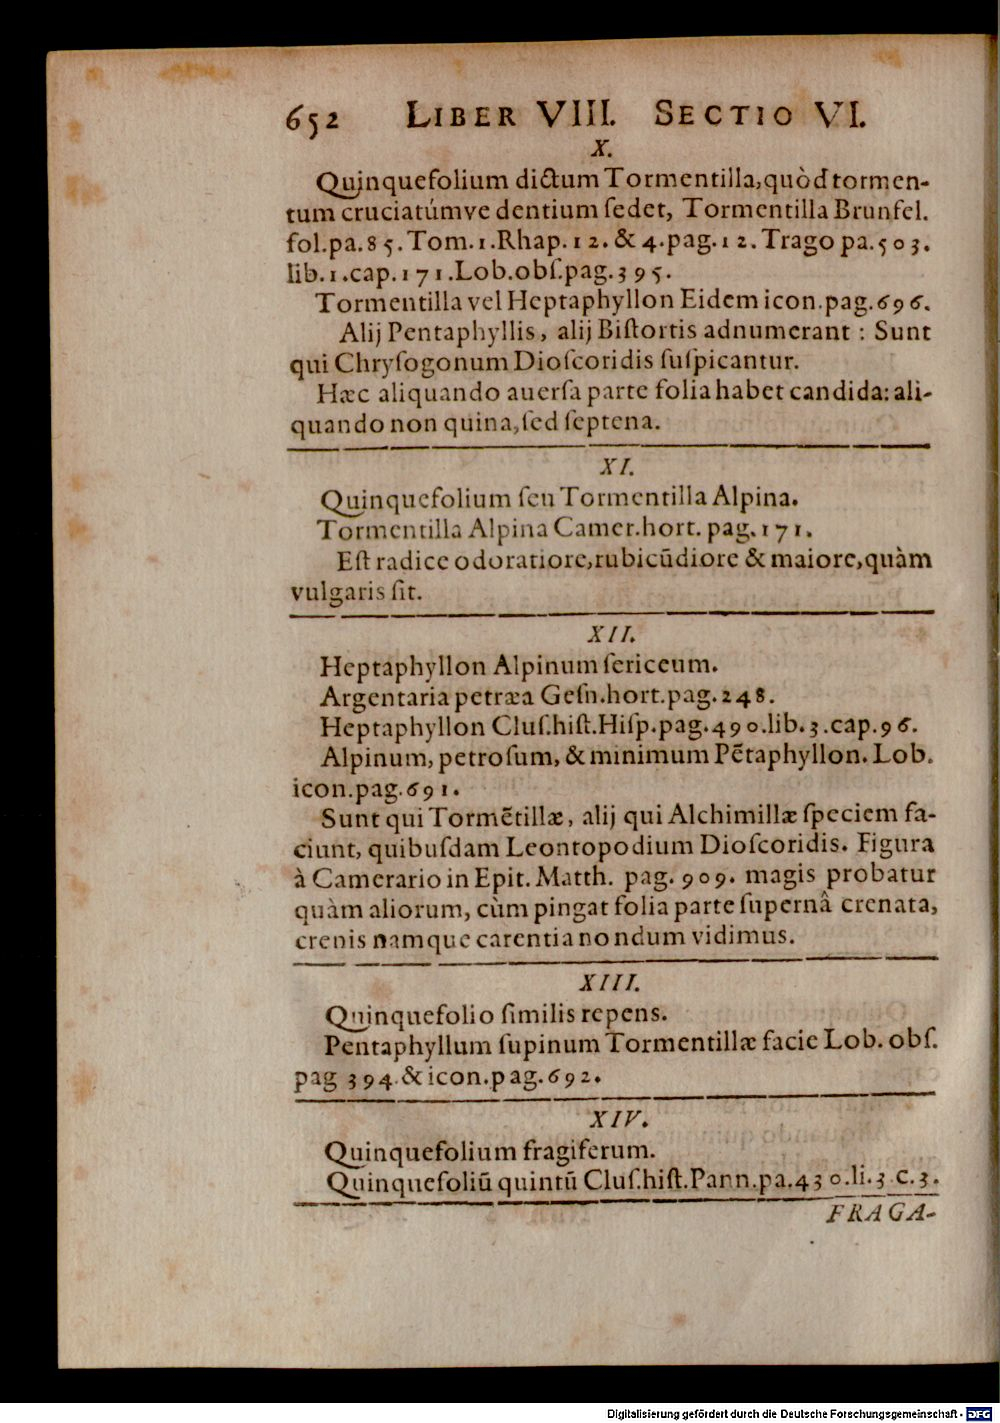 652 LIBER VIII. SECTIO VI.
X.
Quinquefolium dictum Tormentilla, quòd tormen-
tum cruciatúmve dentium ſedet, Tormentilla Brunfel.
fol.pa.85. Tom.1.Rhap.12. & 4.pag.12. Trago pa.503.
lib.1.cap.171.Lob.obſ.pag.395.
Tormentilla vel Heptaphyllon Eidem icon.pag.696.
Alij Pentaphyllis, alij Biſtortis adnumerant : Sunt
qui Chryſogonum Dioſcoridis ſuſpicantur.
Hæc aliquando auerſa parte folia habet candida: ali-
quando non quina, ſed ſeptena.
XI.
Quinquefolium ſeu Tormentilla Alpina.
Tormentilla Alpina Camer.hort. pag.171.
Eſt radice odoratiore, rubicūdiore & maiore, quàm
vulgaris ſit.
XII.
Heptaphyllon Alpinum ſericeum.
Argentaria petræa Geſn.hort.pag.248.
Heptaphyllon Cluſ.hiſt.Hiſp.pag.490.lib.3.cap.96.
Alpinum, petroſum, & minimum Pētaphyllon. Lob.
icon.pag.691.
Sunt qui Tormētillæ, alij qui Alchimillæ ſpeciem fa-
ciunt, quibuſdam Leontopodium Dioſcoridis. Figura
à Camerario in Epit. Matth. pag. 909. magis probatur
quàm aliorum, cùm pingat folia parte ſupernâ crenata,
crenis namque carentia nondum vidimus.
XIII.
Quinquefolio ſimilis repens.
Pentaphyllum ſupinum Tormentillæ facie Lob. obſ.
pag 394. & icon.pag.692.
XIV.
Quinquefolium fragiferum.
Quinquefoliū quintū Cluſ.hiſt.Pann.pa.430.li.3 c.3.
FRAGA-
Digitalisierung gefördert durch die Deutsche Forschungsgemeinschaft - DFG